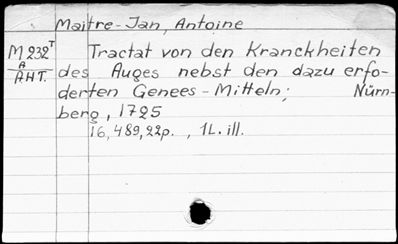 Maitre-Jan, Antoine
M 232 T Tractat von den Kranckheiten
A
AHT. des Auges nebst den dazu erfo-
derten Genees-Mitteln; Nürn-
berg, 1725
16,489,22p. , 1L. ill.